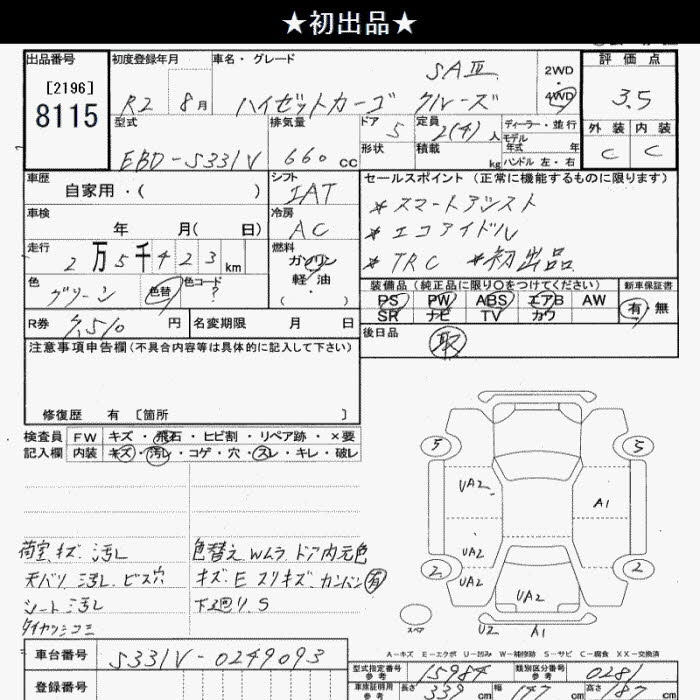 ★初出品★
出品番号
[2196]
8115
初度登録年月
R2 8月
車名・グレード
SAⅢ
ハイゼットカーゴ クルーズ
2WD
・
4WD
評価点
3.5
外装 内装
C C
型式
EBD-S331V
排気量
660 cc
ドア 5
形状
定員 2(4)人
積載 kg
ディーラー・並行
モデル年式 年
ハンドル 左・右
車歴
自家用・( )
シフト
IAT
車検
年 月( 日)
冷房
AC
走行
2万5千423 km
燃料
ガソリン
軽油
・( )
色
グリーン
色替
色コード
?
R券 7,510 円
名変期限 月 日
セールスポイント(正常に機能するものに限ります)
*スマートアシスト
*エコアイドル
*TRC *初出品
装備品(純正品に限り〇をつけてください)
新車保証書
PS PW ABS エアB AW
SR ナビ TV カワ
有・無
後日品
取
注意事項申告欄(不具合内容等は具体的に記入して下さい)
修復歴 有 [箇所 ]
検査員
記入欄
FW キズ・飛石・ヒビ割・リペア跡・×要
内装 キズ・汚レ・コゲ・穴・スレ・キレ・破レ
荷室キズ 汚レ
天バリ 汚レ ビス穴
シート汚レ
色替え Wムラ ドア内元色
キズ・E スリキズ カンバン有
下廻り S
5 5
UA2 A1
UA2
2 2
UA2 UA2
スペア
U2 A1
A-キズ E-エクボ U-凹み W-補修跡 S-サビ C-腐食 XX-交換済
車台番号 S331V-0249093
登録番号
型式指定番号
参考
15984
類別区分番号
参考
0281
車庫証明用
参考
長さ 339 cm 幅 147 cm 高さ 187 cm